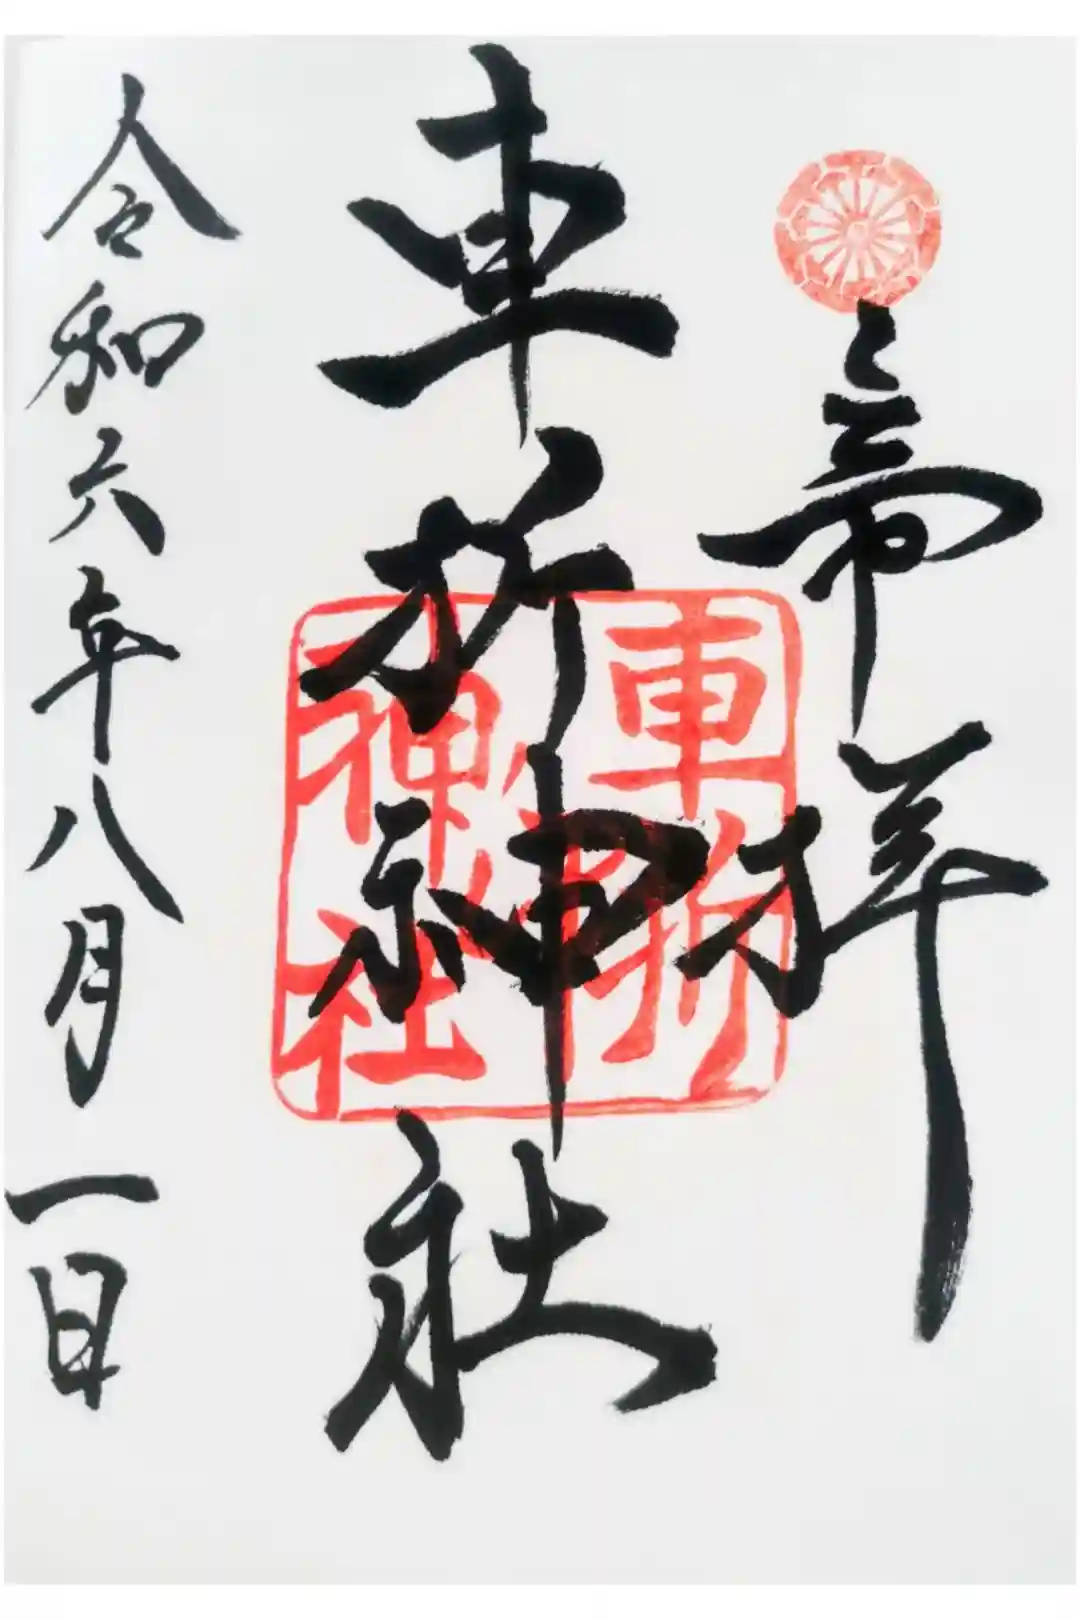 斎拝
車折神社
車折
神社
令和六年八月一日